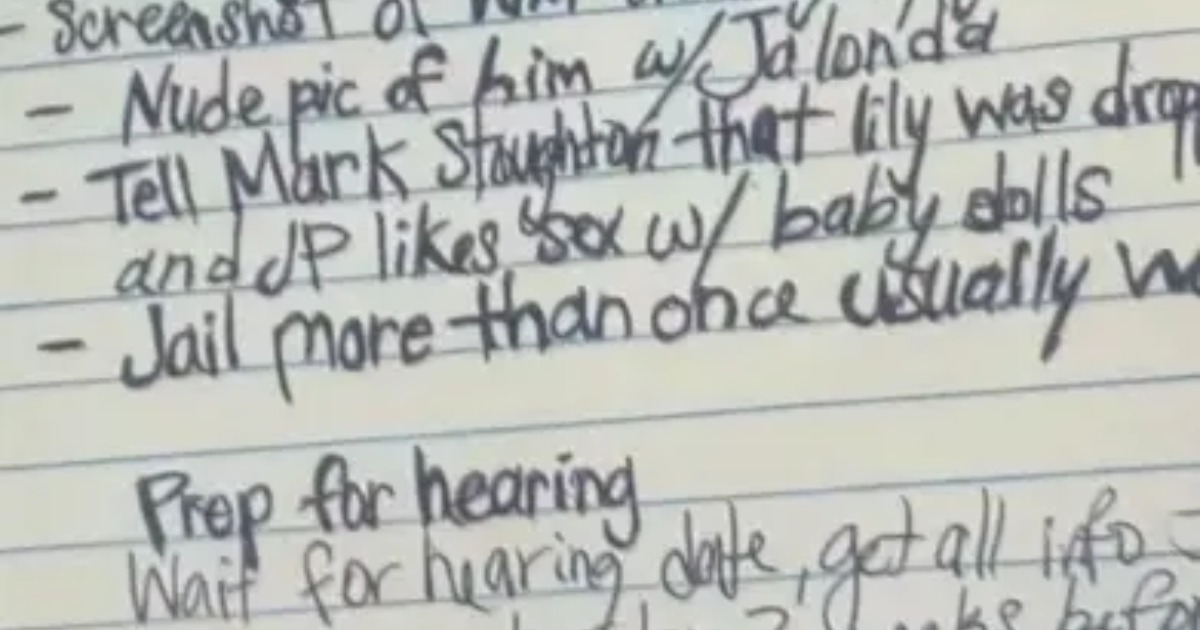 - Screenshot of him
- Nude pic of him w/ Ja'londa
- Tell Mark Stoughton that lily was drop
and JP likes sex w/ baby dolls
- Jail more than once usually w
Prep for hearing
Wait for hearing date, get all info -